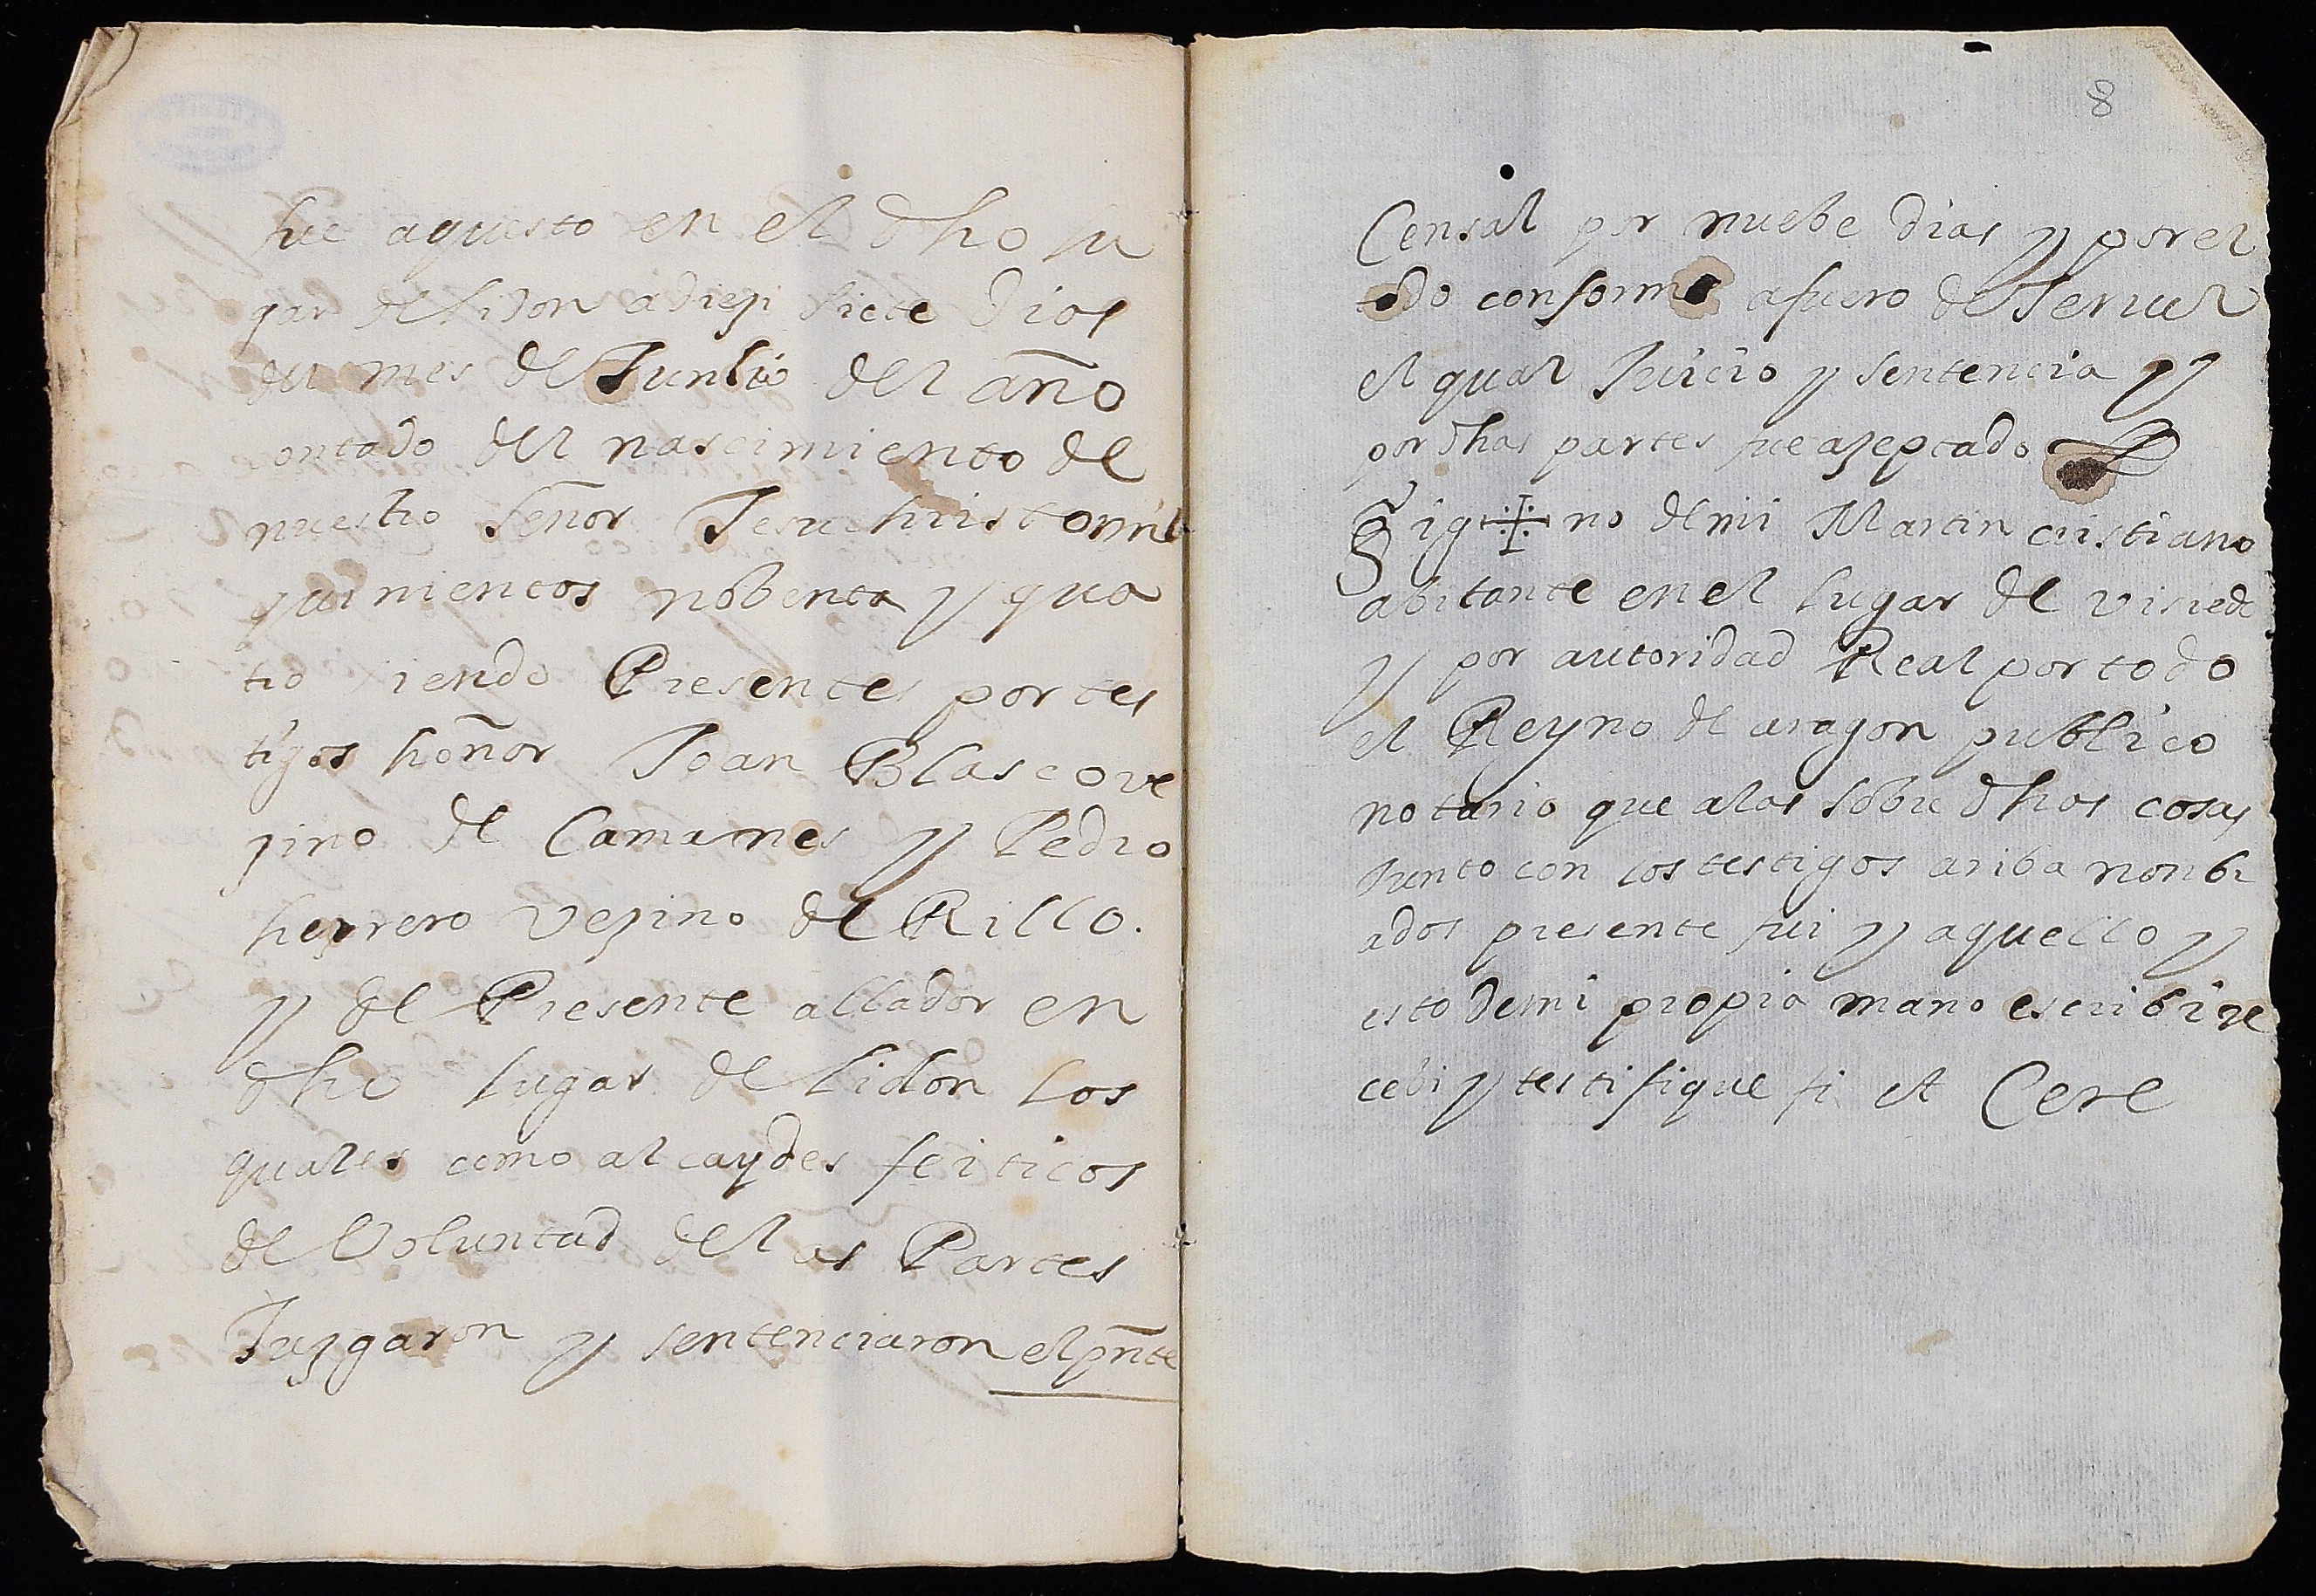 fue aquesto en el dho lu
gar de lidon a diezi siete dias
del mes de Junlio del año
contado del nascimiento de
nuestro Señor Jesuchristo mil
quinientos nobenta y qua
tro siendo Presentes por tes
tigos honor Joan Blasco ve
zino de Camanes y Pedro
herrero vezino de Rillo.
y de Presente allador en
dho lugar de lidon los
quales como alcaydes feiticos
de Voluntad de las Partes
Juzgaron y sentenciaron el pnte
8
Censal por nuebe dias y por el
todo conforme a fuero de Teruel
el qual Juicio y sentencia y
por dhas partes fue azeptado
Sig no de mi Martin cristiano
abitante en el lugar de visiedo
y por autoridad Real por todo
el Reyno de aragon publico
notario que a las sobre dhas cosas
Junto con los testigos ariba nonbr
ados presente fui y aquello y
esto de mi propia mano escribi re
cebi y testifique fi et Cere